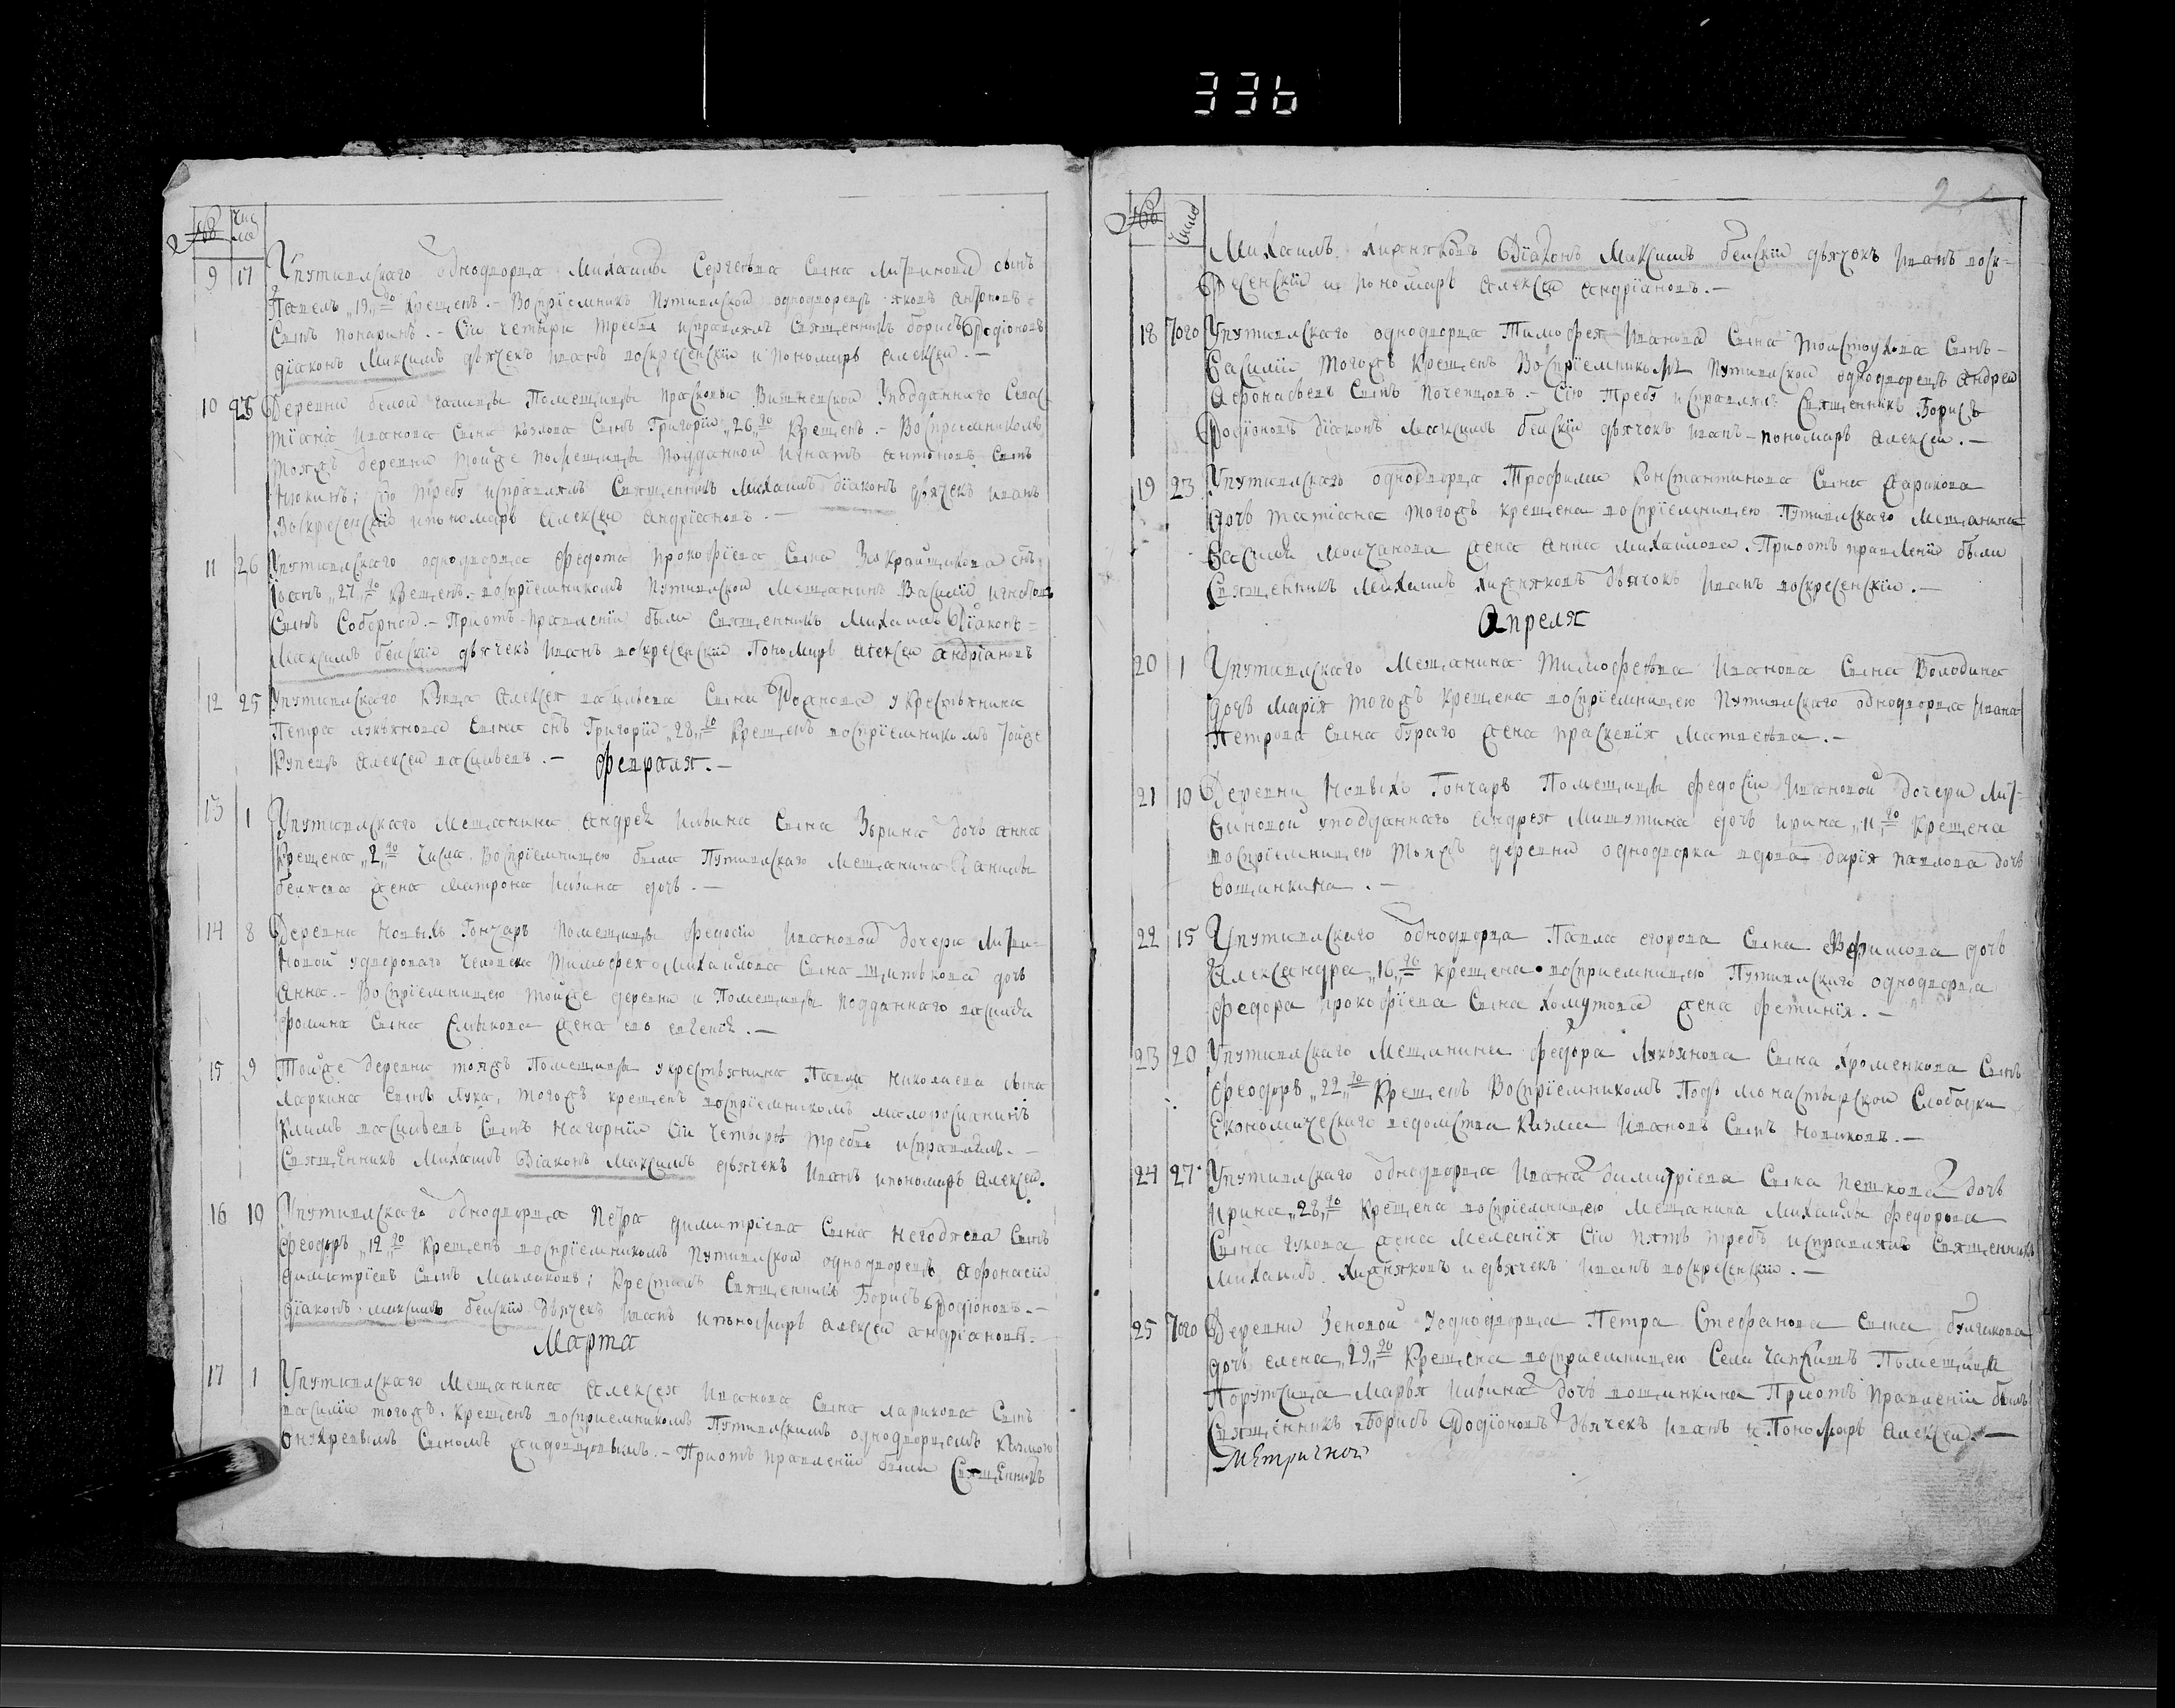 336
2
число
9 17 Упутивлскаго однодворца Михаилы Сергеева сына Литвинова сынъ
Павелъ „19„го крещенъ.- Воспрiемникъ Путивлской однодворецъ яковъ
сынъ понаринъ.- Сiи четыри требы исправлялъ священникъ борисъ Родiоновъ
дiаконъ Максимъ дьячекъ Иванъ воскресенскiй и пономарь алексей.-
10 25 Деревни белой галицы Помещицы прасковьи Вишневской уподданнаго Севас
тiана иванова сына козлова сынъ Григорiй „26„го крещенъ.- Воспрiемникомъ
тояжъ деревни тойже помещицы подданной игнатъ антоновъ сынъ
сiю требу исправлялъ Священникъ Михаилъ дiаконъ дьячекъ иванъ
Воскресенскiй ипономарь алексей андрiановъ.-
11 26 Упутивлскаго однодворца федота прокофiева сына снъ
Iванъ „27„го крещенъ.- воспрiемникомъ Путивлской мещанинъ Василiй
сынъ Соборной.- Приотъ правленiи были Священникъ Михаилъ Дiаконъ
Максимъ белскiй дьячекъ иванъ воскресенскiй Пономарь алексей андрiановъ
12 25 Упутивлскаго купца алексея василева сына Рожнова укрестьянина
Петра лукьянова сына снъ Григорiй „28„го крещенъ воспрiемникомъ тойже
купецъ алексей василевъ.- Февраля.-
13 1 Упутивлскаго мещанина андрея ильина сына Зьрина дочь анна
крещена „2„го числа. воспрiемницею была Путивлскаго мещанина Данилы
беляева жена матрона ильина дочь.-
14 8 Деревни новыхъ Гончаръ помещицы федосiи ивановой дочери Литви-
новой удвороваго человека тимофея михаилова сына дочь
анна.- Воспрiемницею тойже деревни и Помещицы подданнаго василiя
фомина сына жена его евгенiя.-
15 9 Тойже деревни тояжъ Помещицы укрестьянина Павла николаева сына
ларкина сынъ лука, тогожъ крещенъ воспрiемникомъ малоросiянинъ
климъ василевъ сынъ нагорнiй сiи четыре требы исправлялъ.-
священникъ Михаилъ Дiаконъ Максимъ дьячекъ иванъ ипономарь алексей.
16 10 Упутивлскаго однодворца петра димитрiева сына негодяева сынъ
феодоръ „12„го крещенъ воспрiемникомъ путивлской однодворецъ афонасiй
димитрiевъ сынъ Маклаковъ; крестилъ священникъ Борисъ Родiоновъ.-
дiаконъ максимъ белскiй дьячекъ иванъ ипономарь алексей андрiановъ.-
Марта
17 1 Упутивлскаго Мещанина алексея иванова сына ларикова сынъ
василiй тогожъ. крещенъ воспрiемникомъ Путивлскимъ однодворцемъ казмою
сыномъ .- Приотъ правленiи были Священникъ
2
число
2
Михаилъ Хижняковъ Дiаконъ Максимъ белскiй дьячокъ иванъ воск-
ресенскiй и пономарь алексей андрiановъ.-
18 того Упутивлскаго однодворца Тимофея иванова сына толстоухова сынъ-
василiй тогожъ крещенъ Воспрiемникомъ путивлской однодворецъ андрей
афонасьевъ сынъ почепцовъ.- сiю требу исправлялъ Священникъ Борисъ
Родiоновъ дiаконъ максимъ белскiй дьячокъ иванъ- пономарь алексей.-
19 23 Упутивлскаго однодворца Трофима константинова сына жарикова
дочь татiана тогожъ крещена воспрiемницею Путивлскаго мещанина
василiя молчанова жена анна михаилова. Приотъ правленiи были
священникъ Михаилъ хижняковъ дьячокъ иванъ воскресенскiй.-
Апреля
20 1 Упутивлскаго мещанина тимофеева иванова сына Володина
дочь марiя тогожъ крещена воспрiемницею Путивлскаго однодворца ивана
Петрова сына бураго жена праскевiя матвеева.-
21 10 Деревни новыхъ Гончаръ Помещицы федосiи ивановой дочери лит-
виновой уподданнаго андрея мишутина дочь ирина „11„го крещена
воспрiемницею тояжъ деревни однодворка вдова дарiя павлова дочь
вощинкина.-
22 15 Упутивлскаго однодворца Павла егорова сына ефимова дочь
александра „16„го крещена воспрiемницею Путивлскаго однодворца
федора прокофiева сына хомутова жена фетинiя.-
23 20 Упутивлскаго мещанина федора лукьянова сына хроменкова сынъ
феодоръ „22„го крещенъ воспрiемникомъ Подъ монастырской слободки
економическаго ведомства казма ивановъ сынъ новиковъ.-
24 27 Упутивлскаго однодворца ивана димитрiева сына пешкова дочь
ирина „28„го крещена воспрiемницею мещанина михаила федорова
сына гукова жена меланiя сiи пять требъ исправлялъ священникъ
михаилъ хижняковъ и дьячекъ иванъ воскресенскiй.-
25 того Деревни Зеновой уоднодворца Петра Стефанова сына булгакова
дочь елена „29„го крещена воспрiемницею села чаплищъ Помещица
Порутчица марья ильина дочь вощинкина Приотъ правленiи былъ
священникъ Борисъ Родiоновъ дьячекъ иванъ и Пономарь алексей.-
Метричной